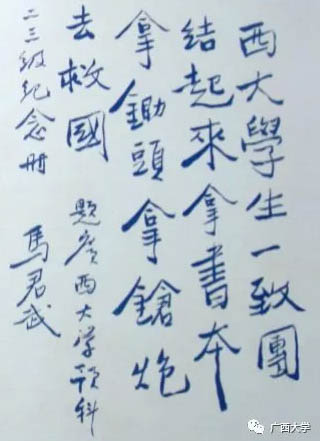 西大學生一致團
結起來拿書本
拿鋤頭拿鎗炮
去救國
題廣西大学預科
二三級纪念册
馬君武
广西大学